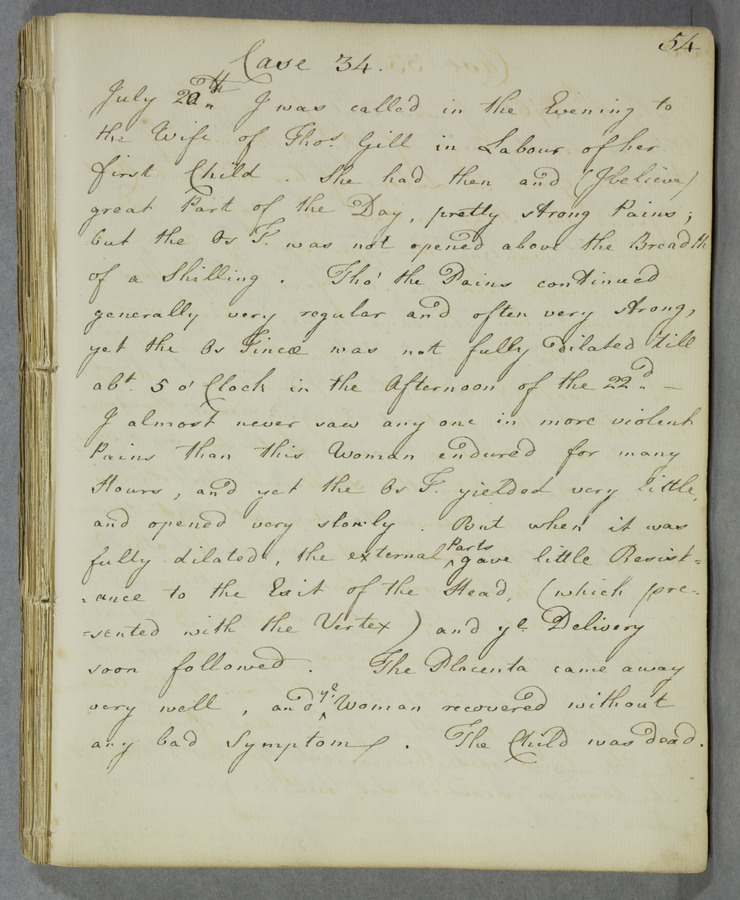 54
Case 34.
July 20th. I was called in the Evening to
the Wife of Thos. Gill in Labour of her
first Child. She had then and (I believe)
great Part of the Day, pretty strong Pains;
but the Os T. was not opened above the Breadth
of a Shilling. Tho' the Pains continued
generally very regular and often very strong,
yet the Os Tincæ was not fully dilated 'till
abt. 5 o'Clock in the Afternoon of the 22d. —
I almost never saw any one in more violent
Pains than this Woman endured for many
Hours, and yet the Os T. yielded very little,
and opened very slowly. But when it was
fully dilated, the external Parts gave little Resist=
=ance to the Exit of the Head, (which pre=
=sented with the Vertex) and ye. Delivery
soon followed. The Placenta came away
very well, and ye. Woman recovered without
any bad Symptom. The Child was dead.